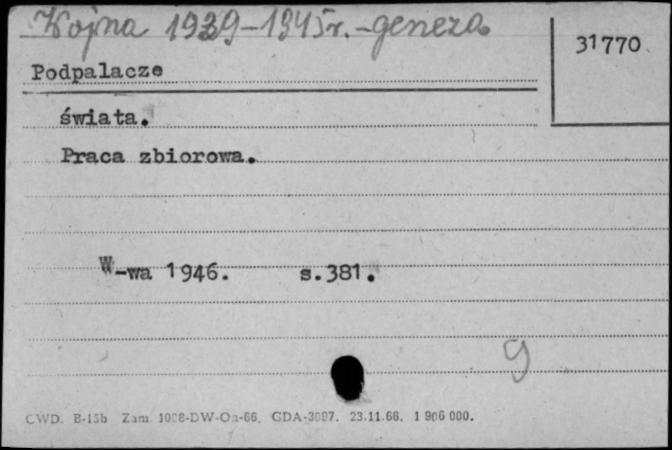 Wojna 1939-1945r. - geneza
31770
Podpalacze
świata.
Praca zbiorowa.
W-wa 1946. s.381.
9
CWD. B-15b Zam. 1008-DW-Oa-66, GDA-3097. 23.11.66. 1 906 000.